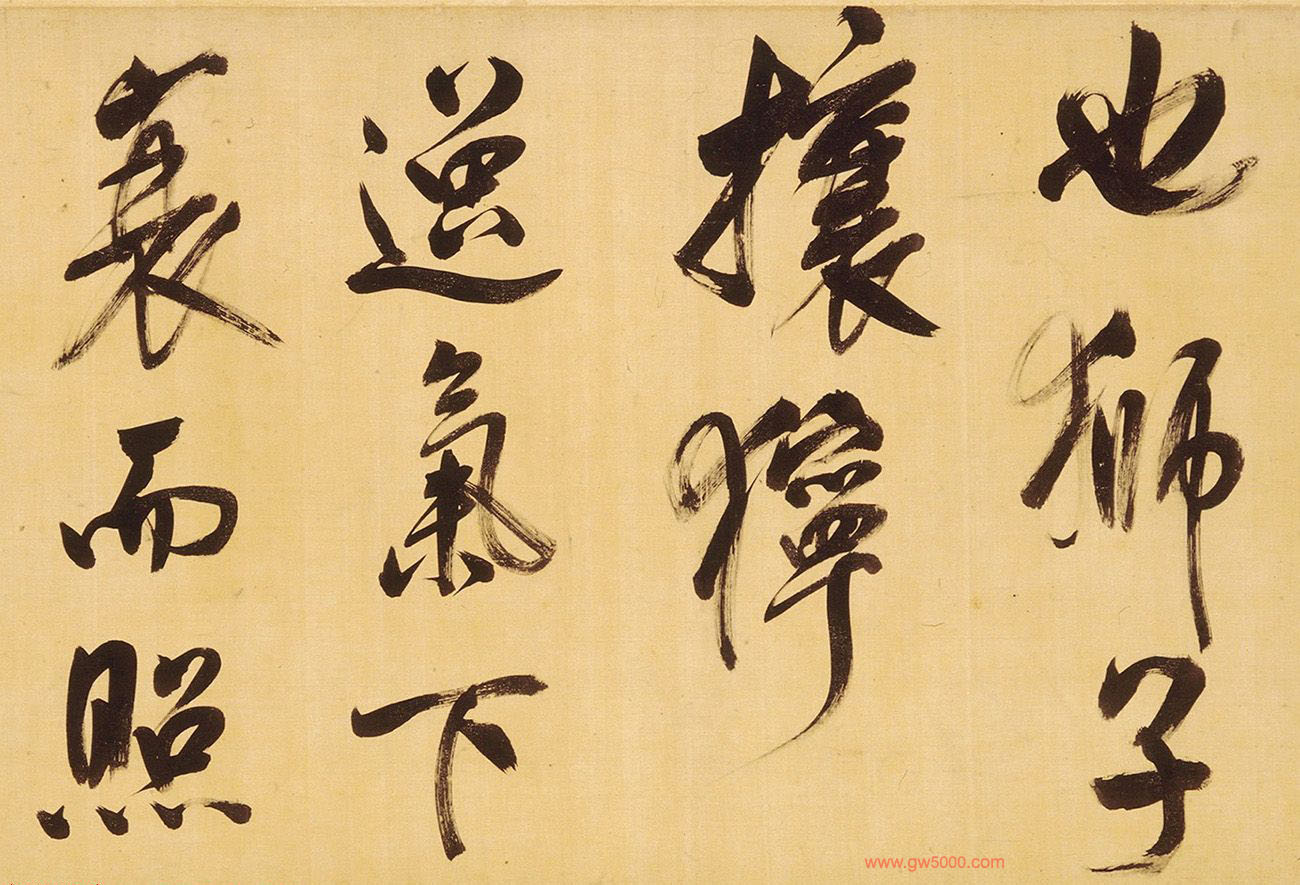 也獅子
攘獰
逸氣下
衰而照
www.gw5000.com